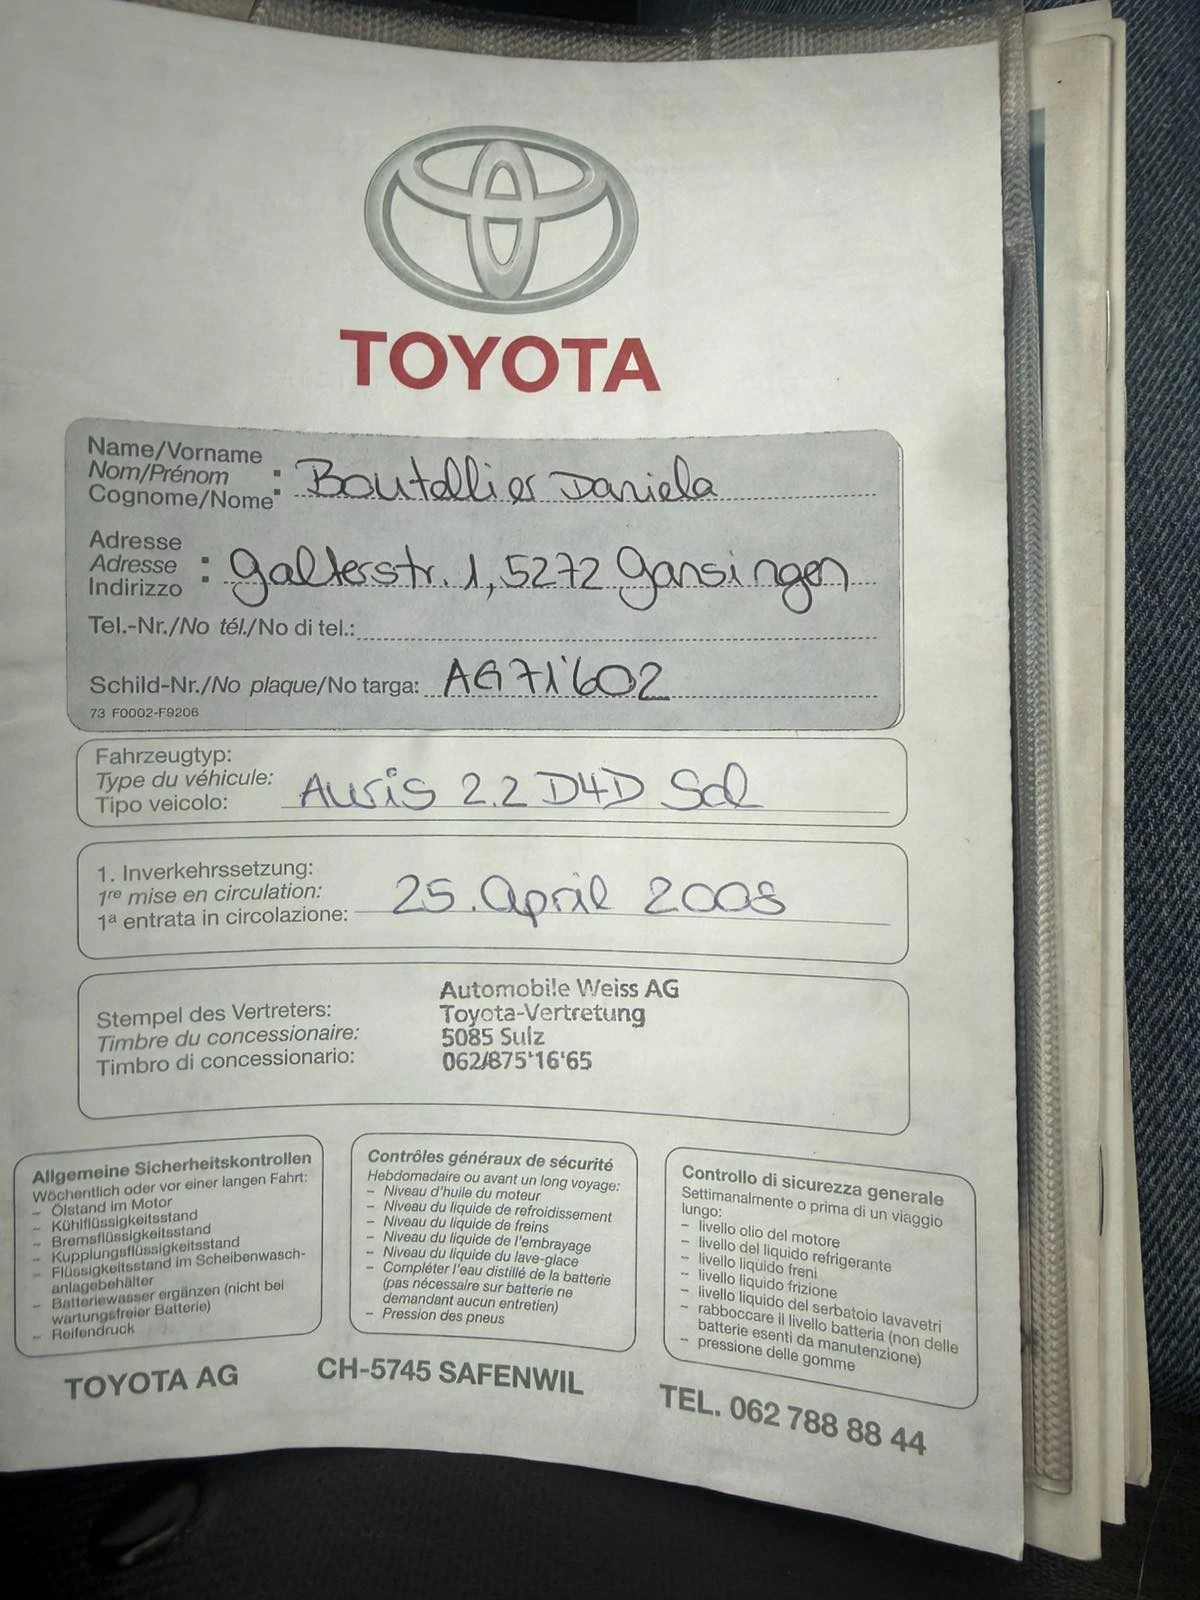 TOYOTA
Name/Vorname
Nom/Prénom
Cognome/Nome : Boutellier Daniela
Adresse
Adresse
Indirizzo : Galterstr. 1, 5272 Gansingen
Tel.-Nr./No tél./No di tel.:
Schild-Nr./No plaque/No targa: AG71'602
73 F0002-F9206
Fahrzeugtyp:
Type du véhicule:
Tipo veicolo: Auris 2.2 D4D Sol
1. Inverkehrssetzung:
1re mise en circulation:
1a entrata in circolazione: 25. April 2008
Stempel des Vertreters:
Timbre du concessionaire:
Timbro di concessionario:
Automobile Weiss AG
Toyota-Vertretung
5085 Sulz
062/875'16'65
Allgemeine Sicherheitskontrollen
Wöchentlich oder vor einer langen Fahrt:
– Ölstand im Motor
– Kühlflüssigkeitsstand
– Bremsflüssigkeitsstand
– Kupplungsflüssigkeitsstand
– Flüssigkeitsstand im Scheibenwasch-
anlagebehälter
– Batteriewasser ergänzen (nicht bei
wartungsfreier Batterie)
– Reifendruck
Contrôles généraux de sécurité
Hebdomadaire ou avant un long voyage:
– Niveau d'huile du moteur
– Niveau du liquide de refroidissement
– Niveau du liquide de freins
– Niveau du liquide de l'embrayage
– Niveau du liquide du lave-glace
– Compléter l'eau distillé de la batterie
(pas nécessaire sur batterie ne
demandant aucun entretien)
– Pression des pneus
Controllo di sicurezza generale
Settimanalmente o prima di un viaggio
lungo:
– livello olio del motore
– livello del liquido refrigerante
– livello liquido freni
– livello liquido frizione
– livello liquido del serbatoio lavavetri
– rabboccare il livello batteria (non delle
batterie esenti da manutenzione)
– pressione delle gomme
TOYOTA AG
CH-5745 SAFENWIL
TEL. 062 788 88 44